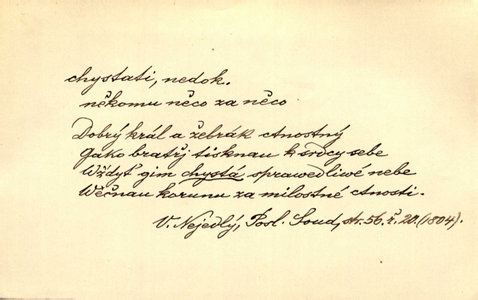 chystati, nedok.
někomu něco za něco
Dobrý král a žebrák ctnostný
Gako bratřj tisknau k srdcy sebe
Wždyť gim chystá sprawedliwé nebe
Wěčnau korunu za milostné ctnosti.
V. Nejedlý, Posl. Soud, str. 56. ř. 20. (1804).